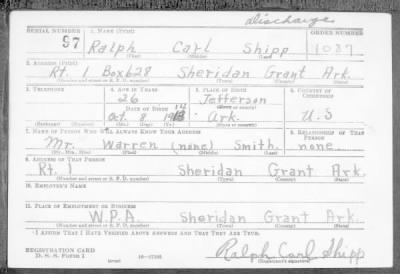 Discharge
SERIAL NUMBER 1. NAME (Print) ORDER NUMBER
97 Ralph Carl Shipp 1087
(First) (Middle) (Last)
2. ADDRESS (Print)
Rt. 1 Box 628 Sheridan Grant Ark.
(Number and street or R. F. D. number) (Town) (County) (State)
3. TELEPHONE 4. AGE IN YEARS 5. PLACE OF BIRTH 6. COUNTRY OF CITIZENSHIP
26 Jefferson
DATE OF BIRTH (Town or county)
Oct. 8 Ark. U.S
(Mo.) (Day) (Yr.) (State or country)
7. NAME OF PERSON WHO WILL ALWAYS KNOW YOUR ADDRESS 8. RELATIONSHIP OF THAT PERSON
Mr. Warren (none) Smith. none.
(Mr., Mrs., Miss) (First) (Middle) (Last)
9. ADDRESS OF THAT PERSON
Rt. 1 Sheridan Grant Ark.
(Number and street or R. F. D. number) (Town) (County) (State)
10. EMPLOYER'S NAME
11. PLACE OF EMPLOYMENT OR BUSINESS
W.P.A. Sheridan Grant Ark.
(Number and street or R. F. D. number) (Town) (County) (State)
I AFFIRM THAT I HAVE VERIFIED ABOVE ANSWERS AND THAT THEY ARE TRUE.
REGISTRATION CARD
D. S. S. Form 1 Ralph Carl Shipp
(over) (Registrant's signature)